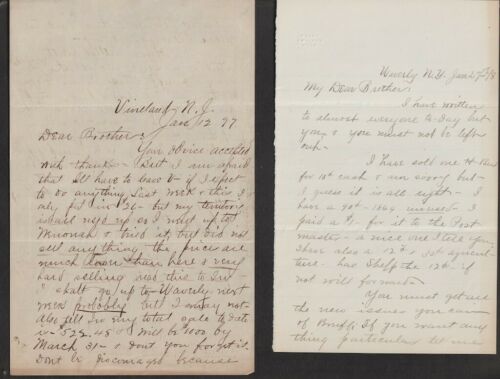 Vineland N.J.
Jan 12 97
Dear Brother:
Your advice accepted
with thanks - But I am afraid
that I'll have to leave if I expect
to do anything. Last week & this I
only put in $26- but my territory is
used up so I went up to
& tried it, but did not
sell anything the prices are
much lower than here & very
hard selling
I shall go up to Waverly next
week probably but I may not
also sell In my total sale to date
is $522.45 & will be $600 by
March 31- & dont you forget it.
Dont be discouraged because
Waverly N.Y. Jan 27th
My Dear Brother:
I have written
to almost everyone to day but
you & you must not be left
out -
I have sold one
for 10$ cash & am sorry but
I guess it is all right - I
have a 90¢- 1869 unused. I
paid a $1- for it to the Post
master - a nice one I tell you.
I have also a 12¢ & 30¢ agricul-
ture - has the 12¢ - if
not will forward -
You must get all
the new issues you can
of If you want any
thing particular let me